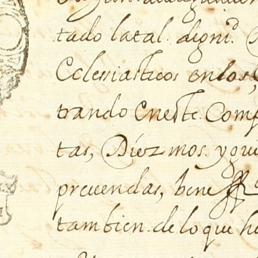 tado la tal digni.
Eclesiasticos en los
trando en este. Comp
tas, Diezmos. y que
prevendas, bene
tambien. de lo que he